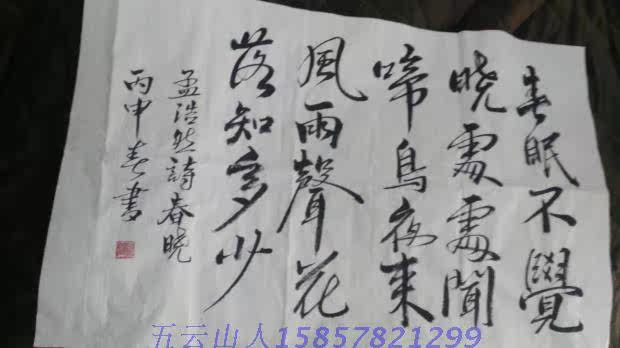 春眠不覺
晓處處聞
啼鳥夜来
風雨聲花
落知多少
孟浩然詩春晓
丙申春書
五云山人15857821299